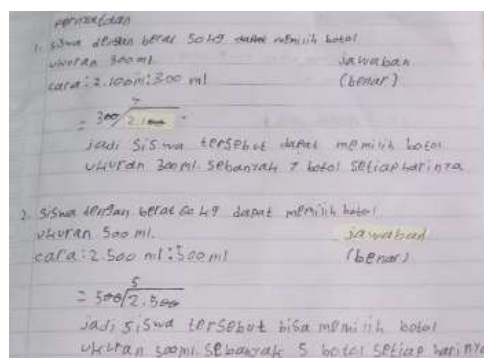 permasalahan
1. siswa dengan berat 50 kg dapat memilih botol
ukuran 300 ml jawaban
cara : 2.100 ml : 300 ml (benar)
7
= 300/2.100
jadi siswa tersebut dapat memilih botol
ukuran 300 ml. sebanyak 7 botol setiap harinya
2. siswa dengan berat 60 kg dapat memilih botol
ukuran 500 ml. jawaban
cara : 2.500 ml : 500 ml (benar)
5
= 500/2.500
jadi siswa tersebut bisa memilih botol
ukuran 500 ml. sebanyak 5 botol setiap harinya